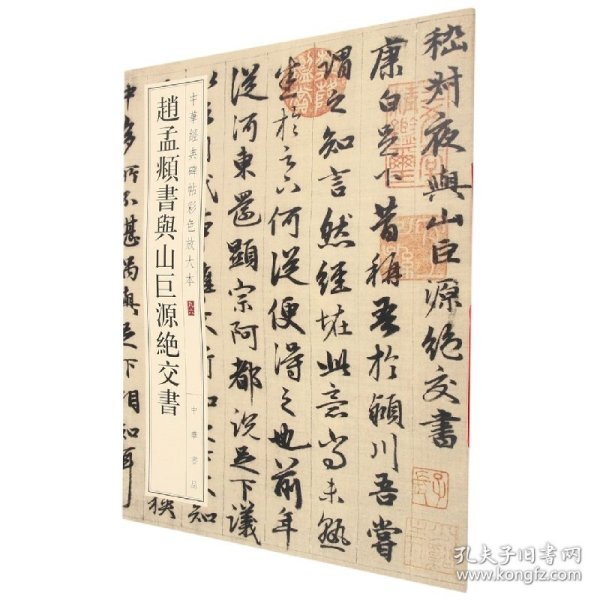 嵇叔夜與山巨源絕交書
康白足下昔稱吾於潁川吾嘗
謂之知言然經怪此意尚未熟
悉於足下何從便得之也前年
從河東還顯宗阿都說足下議
中華經典碑帖彩色放大本
趙孟頫書與山巨源絕交書
中華書局
中多所不堪偶與足下相知耳
孔夫子旧书网
www.kongfz.com